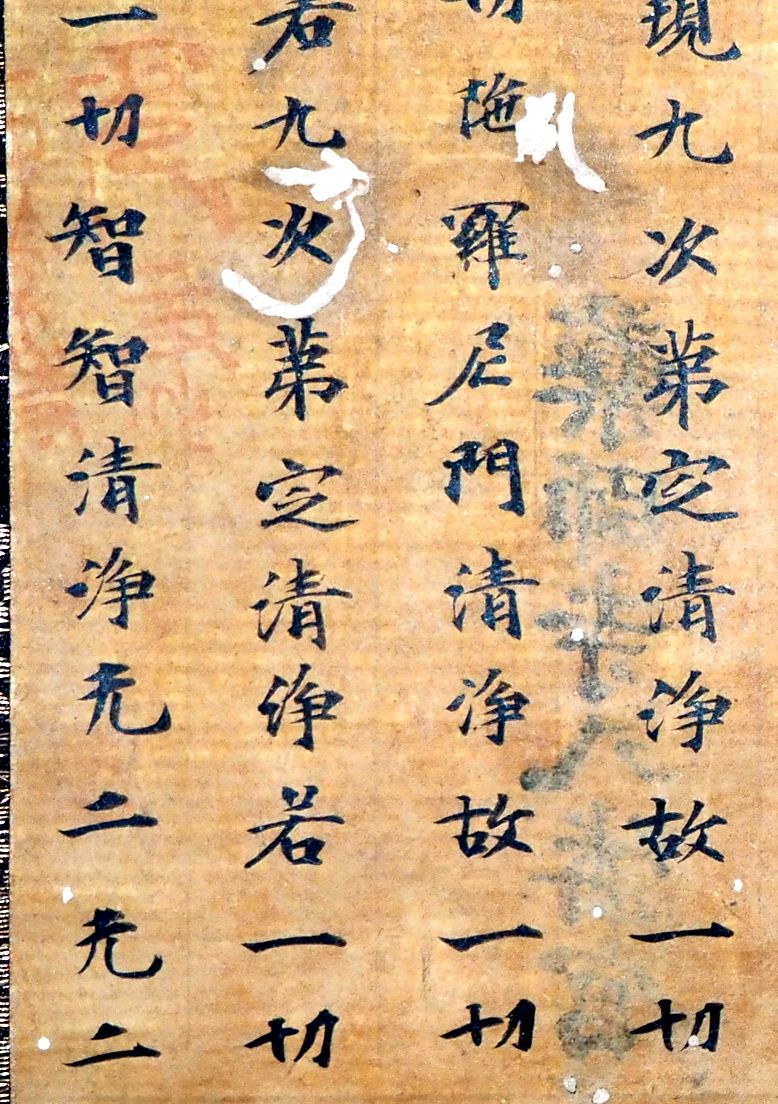 現九次第定清浄故一切
切陁羅尼門清浄故一切
若九次第定清浄若一切
一切智智清浄无二无二